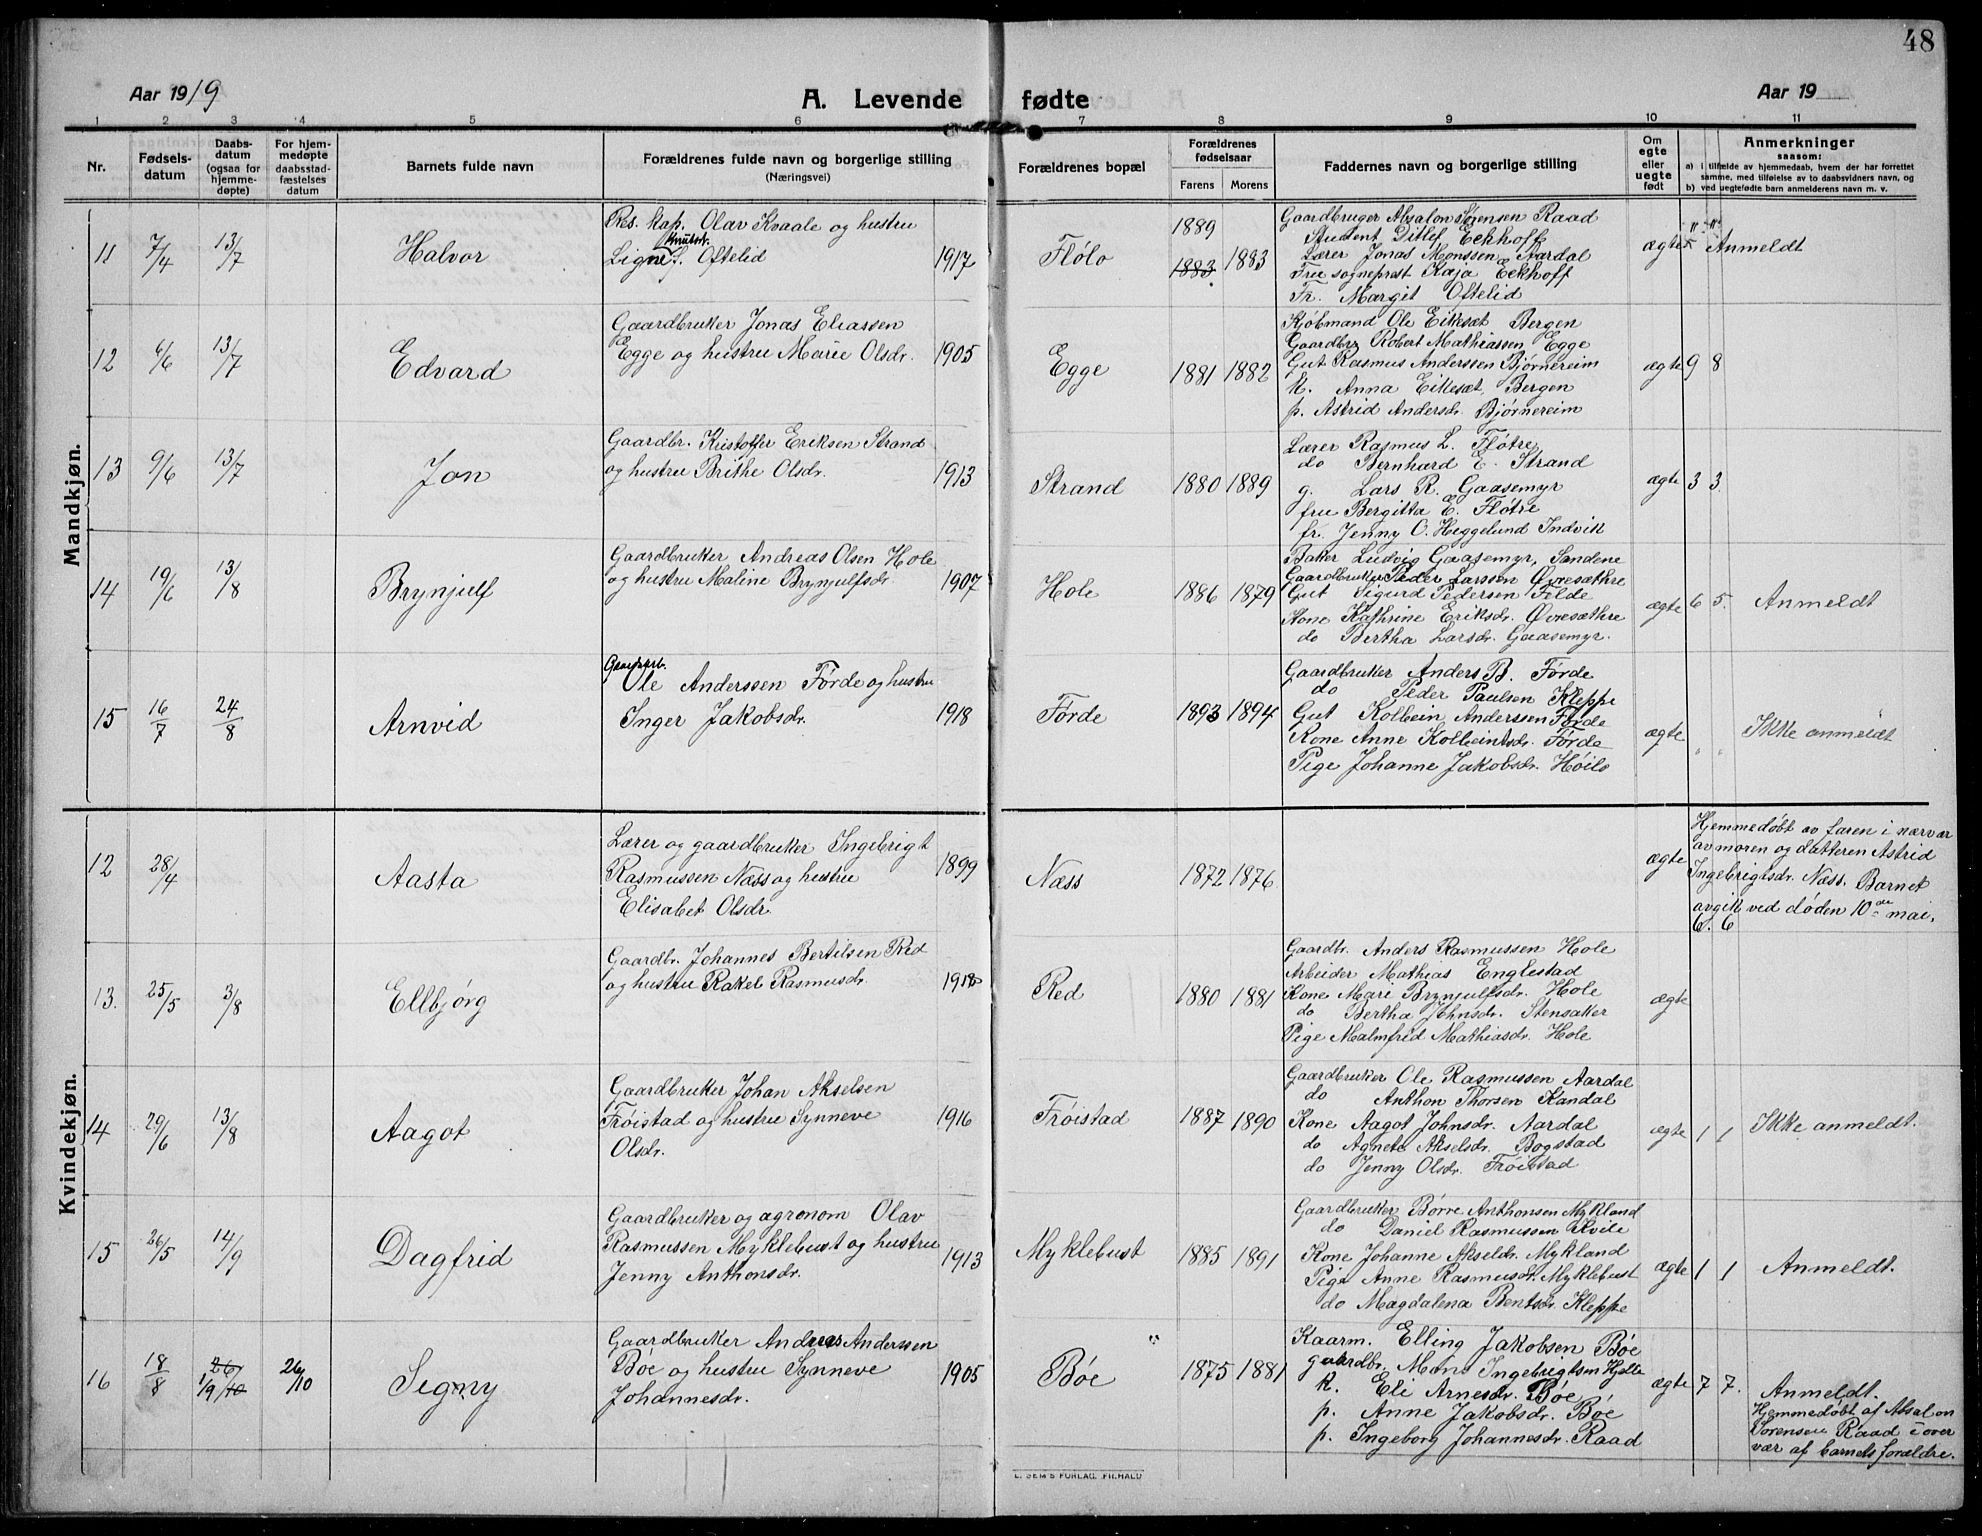 48
Aar 1919
A. Levende fødte
Aar 19
1 2 3 4 5 6 7 8 9 10 11
Nr.
Fødselsdatum
Daabsdatum (ogsaa for hjemmedøpte)
For hjemmedøpte daabsstadfæstelses datum
Barnets fulde navn
Forældrenes fulde navn og borgerlige stilling
(Næringsvei)
Forældrenes bopæl
Forældrenes fødselsaar
Farens Morens
Faddernes navn og borgerlige stilling
Om egte eller uegte født
Anmerkninger
saasom:
a) i tilfælde av hjemmedaab, hvem der har forrettet samme, med tilføielse av to daabsvidners navn, og
b) ved uegtefødte barn anmelderens navn m. v.
Mandkjøn.
11 7/4 13/7 Halvor
Res. kap. Olav Kvaale og hustru
Knutsdr.
Oftelid 1917
Flølo
1889
1883 1883
Gaardbruger Absalon Sørensen Raad
Student Ditlef Eckhoff
Lærer Jonas Monssen Aardal
Frue sogneprest Kaja Eckhoff
Fr. Margit Oftelid
ægte " "
5 Anmeldt
12 6/6 13/7 Edvard
Gaardbruker Jonas Eliassen
Egge og hustru Marie Olsdr. 1905
Egge 1881 1882
Kjøbmand Ole Eikesæt Bergen
Gaardbr. Robert Mathiassen Egge
Gut Rasmus Anderssen Bjørnereim
k. Anna Eikesæt, Bergen
p. Astrid Andersdr. Bjørnereim
ægte 9 8
13 9/6 13/7 Jon
Gaardbr. Kristoffer Eriksen Strand
og hustru Brithe Olsdr. 1913
Strand 1880 1889
Lærer Rasmus L. Fløtre
do Bernhard E. Strand
g. Lars R. Gaasemyr
fru Bergitta E. Fløtre
fr. Jenny O. Heggelund Indvik
ægte 3 3
14 19/6 13/8 Brynjulf
Gaardbruker Andreas Olsen Hole
og hustru Maline Brynjulfsdr. 1907
Hole 1886 1879
Baker Ludvig Gaasemyr, Sandene
Gaardbruker Peder Larssen Øvresæthre
Gut Sigurd Pedersen Felde
Kone Kathrine Eriksdr. Øvresæthre
do Bertha Larsdr. Gaasemyr.
ægte 6 5. Anmeldt
15 16/7 24/8 Arnvid
Ole Anderssen Førde og hustru
Inger Jakobsdr. 1918
Førde 1893 1894
Gaardbruker Anders B. Førde
do Peder Paulsen Kleppe
Gut Kolbein Anderssen Førde
Kone Anne Kolbeintsdr. Førde
Pige Johanne Jakobsdr. Høilo
ægte " " Ikke anmeldt
Kvindekjøn.
12 28/4 Aasta
Lærer og gaardbruker Ingebrigt
Rasmussen Næss og hustru
Elisabet Olsdr. 1899
Næss 1872 1876
ægte
Hjemmedøbt av faren i nærvær
av moren og datteren Astrid
Ingebrigtsdr. Næss. Barnet
avgik ved døden 10de mai.
6. 6
13. 25/5 3/8 Ellbjørg
Gaardbr. Johannes Bertilsen Red
og hustru Rakel Rasmusdr. 1918
Red 1880 1881
Gaardbr. Anders Rasmussen Hole
Arbeider Mathias Englestad
Kone Mari Brynjulfsdr. Hole
do Bertha Johnsdr. Stensaker
Pige Malmfrid Mathiasdr. Hole
ægte
14 29/6 13/8 Aagot
Gaardbruker Johan Akselsen
Frøistad og hustru Synneve
Olsdr. 1916
Frøistad 1887 1890
Gaardbruker Ole Rasmussen Aardal
do Anthon Thorsen Kandal
Kone Aagot Johnsdr. Aardal
do Agnete Akselsdr. Bogstad
do Jenny Olsdr. Frøistad
ægte 1 1 Ikke anmeldt.
15 26/5 14/9 Dagfrid
Gaardbruker og agronom Olav
Rasmussen Myklebust og hustru
Jenny Anthonsdr. 1913
Myklebust 1885 1891
Gaardbruker Børre Anthonsen Mykland
do Daniel Rasmussen Kvile
Kone Johanne Akseldr. Mykland
Pige Anne Rasmusdr. Myklebust
do Magdalena Bentsdr. Kleppe
ægte 1 1 Anmeldt.
16 18/8 1/9 26/10 26/10 Signy
Gaardbruker Andreas Anderssen
Bøe og hustru Synneve
Johannesdr. 1905
"
Bøe 1875 1881
Kaarm. Elling Jakobsen Bøe
gaardbr. Mons Ingebrigtsen Hjelle
k. Eli Arnesdr. Bøe
p. Anne Jakobsdr. Bøe
p. Ingeborg Johannesdr. Raad
ægte 7 7. Anmeldt.
Hjemmedøbt af Absalon
Sørensen Raad i over
vær af barnets forældre.
L. SEM'S FORLAG, FR.HALD